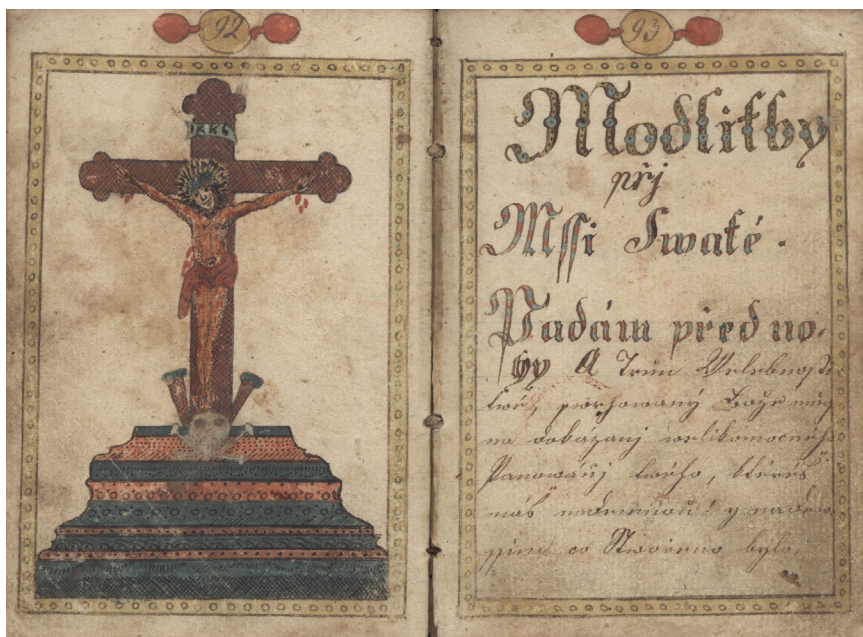 92
93
Modlitby
přj
Mssi Swaté.
Padám před no,
hy A Trůn Welebnosti
twé, pozwowaný Bože můg
na dokázanj welikomocného
Panowánj twého, kteréž
máš nademnau! y nade
co Stwořeno bylo,